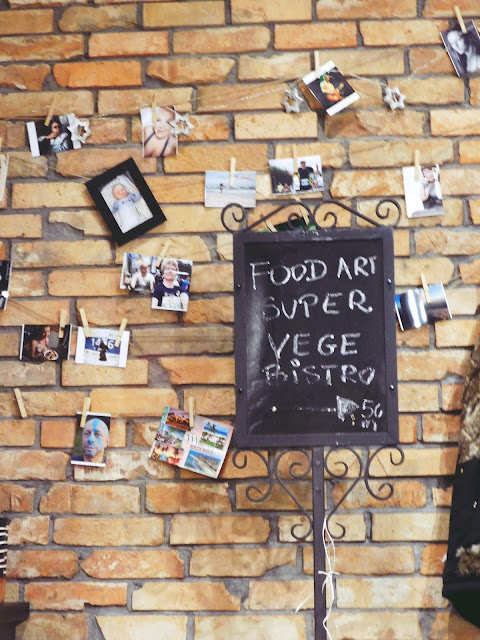 FOOD ART
SUPER
VEGE
BISTRO
50
m